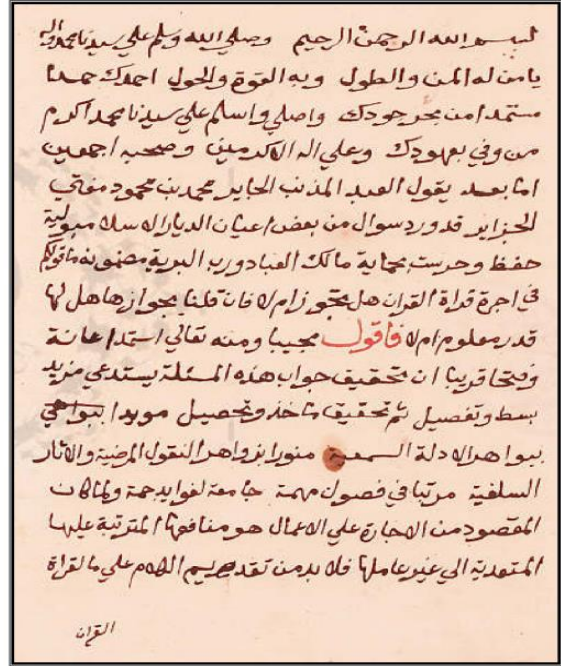 بسم الله الرحمن الرحيم وصلي الله وسلم علي سيدنا محمد واله
يا من له المن والطول وبه القوة والحول احمدك حمدا
مستمدا من بحر جودك واصلي واسلم علي سيدنا محمد اكرم
من وفي بعهودك وعلي اله الاكرمين وصحبه اجمعين
اما بعد يقول العبد المذنب الجاير محمد بن محمود مفاتي
الجزاير قد ورد سوال من بعض اعيان الديار الاسلامبولية
حفظ وحرست بحماية مالك العباد ورب البرية مضمونه ما قولكم
في اجرة قراة القران هل تجوز ام لا فان قلنا بجوازها هل لها
قدر معلوم ام لا فاقول مجيبا ومنه تعالي استمد اعانة
وفتحا قريبا ان تحقيق جواب هذه المسئلة يستدعي مزيد
بسط وتفصيل ثم تحقيق ماخذ وتحصيل مويدا
ببواهر الادلة السمعية منورا بزواهر النقول المرضية والاثار
السلفية مرتبا في فصول مهمة جامعة لفوايد جمة ولما كان
المقصود من الاجارة علي الاعمال هو منافعها المترتبة عليها
المتعدية الي غير عاملها فلا بد من تقديم الكلام علي ما لقراة
القران